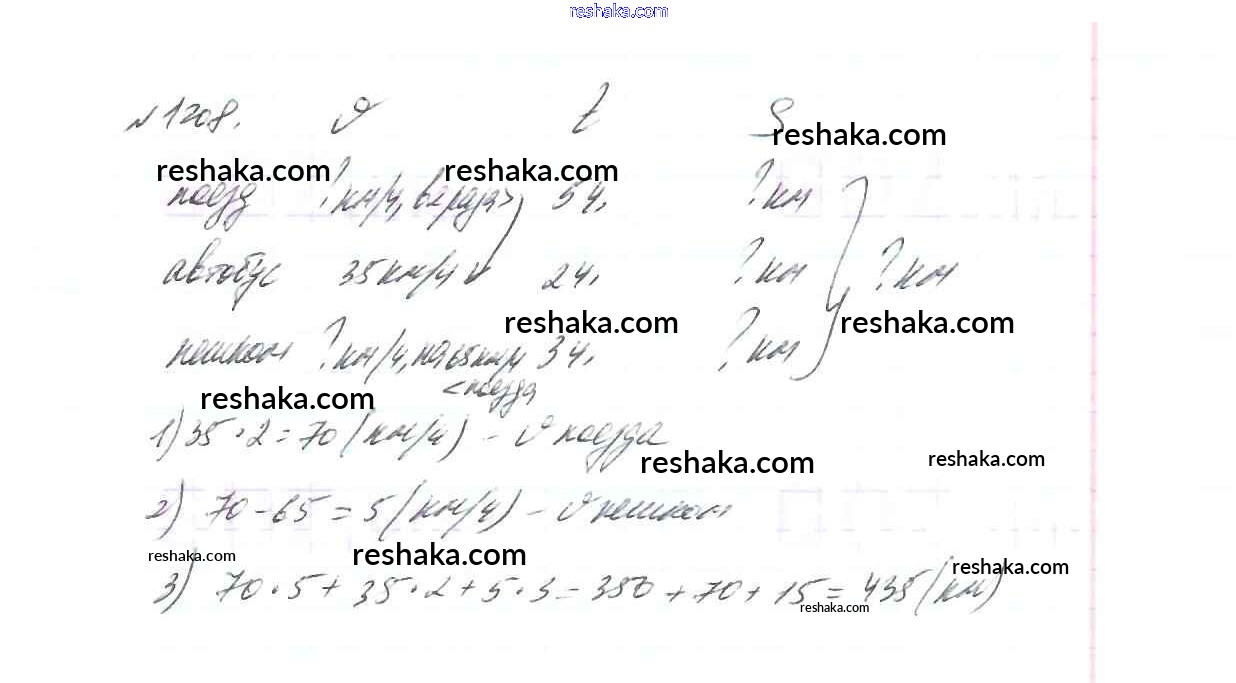 reshaka.com
№1208. v t S
reshaka.com
reshaka.com reshaka.com
поезд ? км/ч, в 2 раза > 5 ч. ? км
автобус 35 км/ч 2 ч. ? км ? км
reshaka.com reshaka.com
пешком ? км/ч, на 65 км/ч 3 ч. ? км
< поезда
reshaka.com
1) 35 · 2 = 70 (км/ч) - v поезда
reshaka.com reshaka.com
2) 70 - 65 = 5 (км/ч) - v пешком
reshaka.com reshaka.com reshaka.com
3) 70 · 5 + 35 · 2 + 5 · 3 = 350 + 70 + 15 = 435 (км)
reshaka.com